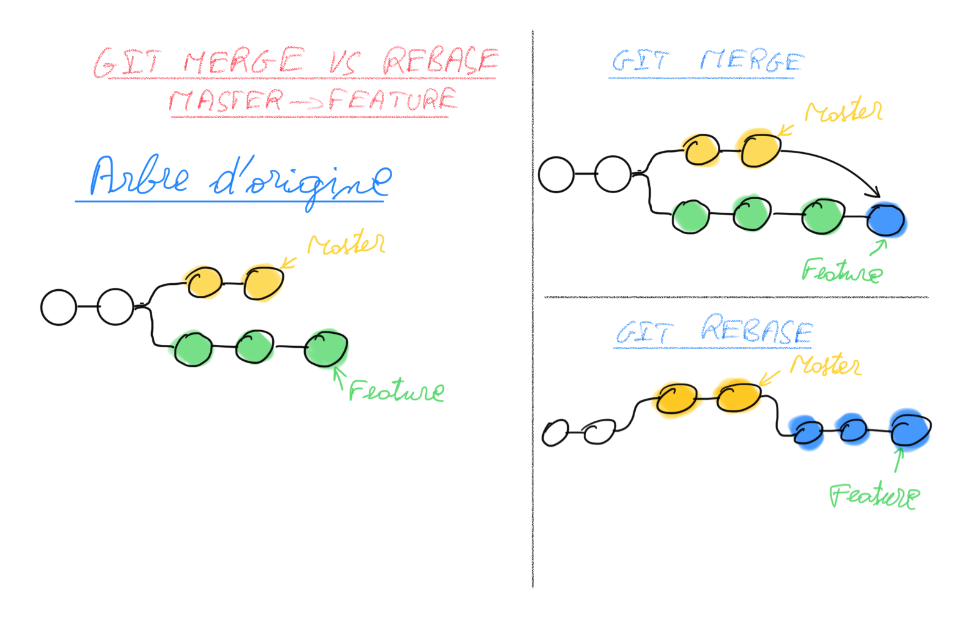 GIT MERGE VS REBASE
MASTER → FEATURE
Arbre d'origine
Master
Feature
GIT MERGE
Master
Feature
GIT REBASE
Master
Feature